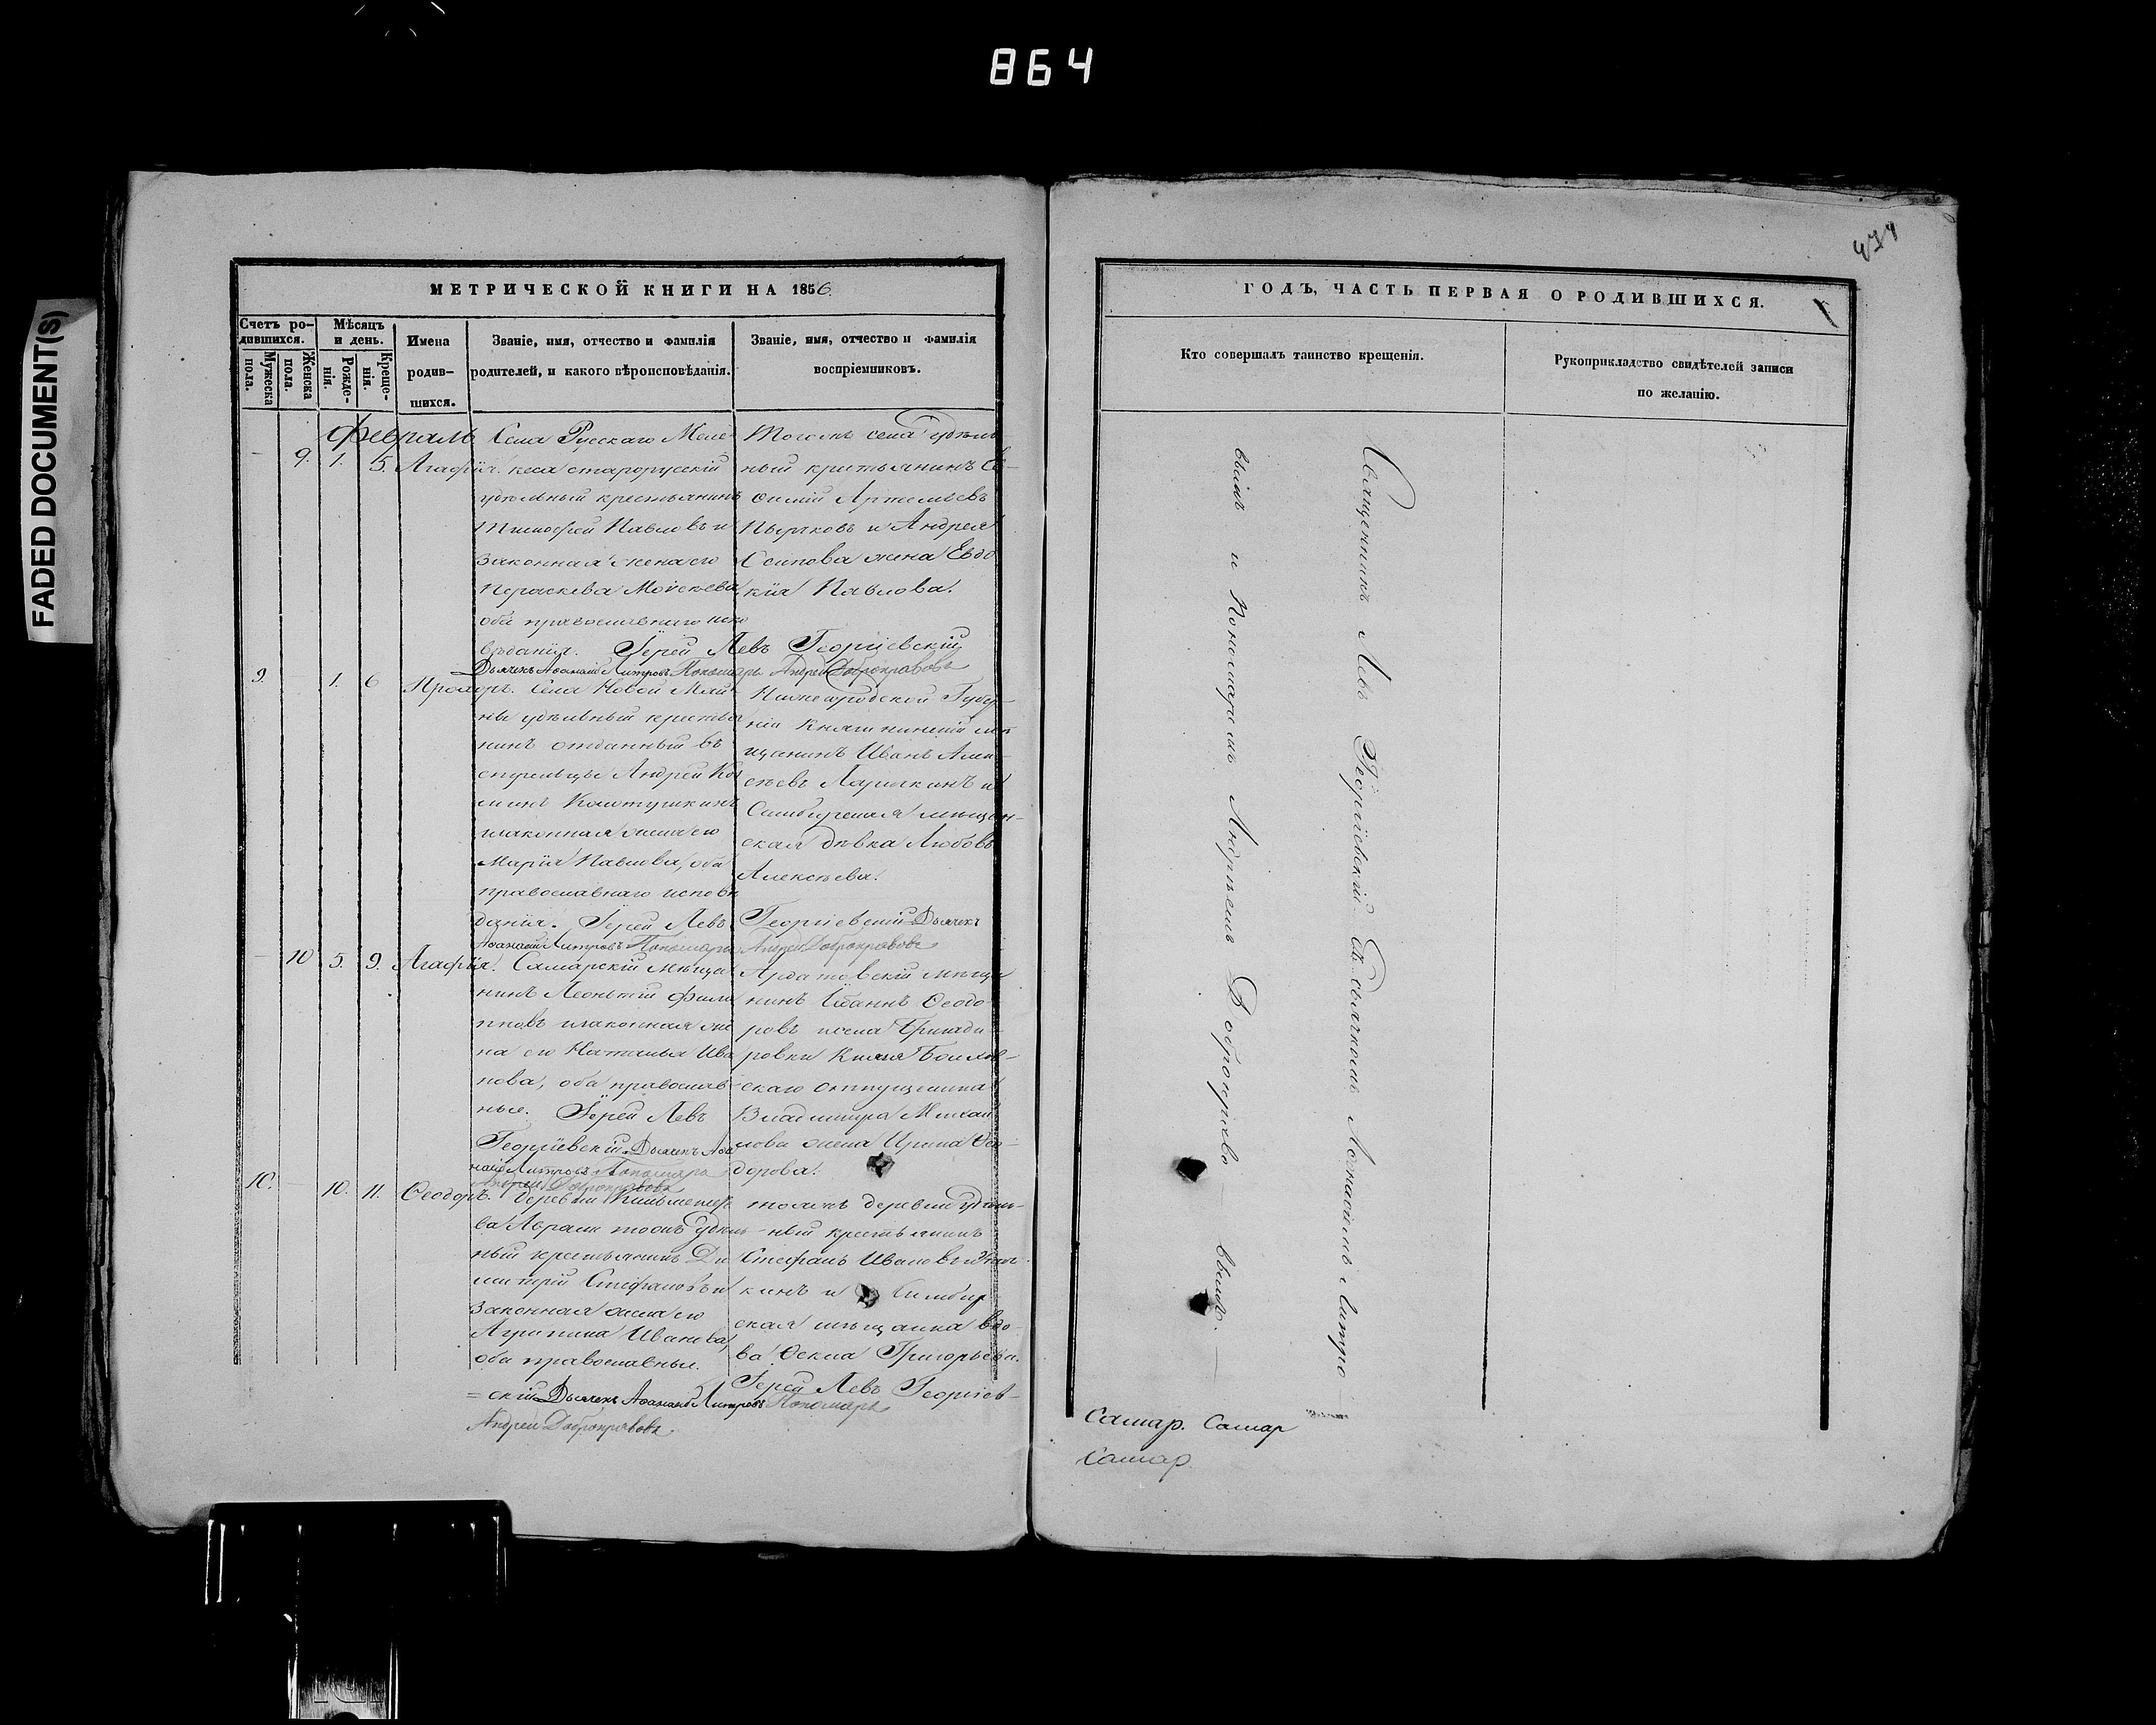 864
FADED DOCUMENT(S)
МЕТРИЧЕСКОЙ КНИГИ НА 1856.
Счетъ ро-
дившихся.
Мужеска
пола.
Женска
пола.
Мѣсяцъ
и день.
Рожде-
нія.
Креще-
нія.
Имена
родив-
шихся.
Званіе, имя, отчество и фамилія
родителей, и какого вѣроисповѣданія.
Званіе, имя, отчество и фамилія
воспріемниковъ.
Февраль
9. 1. 5. Агафія.
Села Русскаго Меле
кеса старорускій
удѣльный крестьянинъ
Тимофей Павловъ и
законная жена его
Параскева Моисеева
оба православнаго испо
вѣданія. Іерей Левъ Георгіевскій
Дьячекъ Афанасій Литровъ Пономарь Андрей Доброкравовъ
Тогожъ села удѣль
ный крестьянинъ Ев-
фимій Артемьевъ
Пырковъ и Андрея
Осипова жена Евдо
кія Павлова.
9. 1. 6 Прохоръ.
Села Новой Май
ны удѣльный крестья
нинъ отданный въ
стрельцы Андрей Ко
минъ
изаконная жена его
Марія Павлова, оба
православнаго исповѣ
данія. Іерей Левъ Георгіевскій Дьячекъ
Афанасій Литровъ Пономарь Андрей Доброкравовъ
Нижегородской Губер-
ніи Княгининскій мѣ
щанинъ Иванъ Алек
сѣевъ Ларькинъ и
Симбирская мѣщан-
ская дѣвка Любовь
Алексѣева.
10 5. 9. Агафія.
Самарскій мѣща
нинъ Леонтій Фили
повъ изаконная же
на его Наталья Ива
нова, оба православ
ные. Іерей Левъ
Георгіевскій Дьячекъ Афа
насій Литровъ Пономарь
Андрей Доброкравовъ
Ардатовскій мѣща
нинъ Іоаннъ Ѳеодо
ровъ исела Бригади
ровки Князя
скаго отпущенника
Владимира Михай
лова жена Ирина Ѳео-
дорова.
10. 10. 11. Ѳеодоръ.
деревни
ва Аврали тожъ Удѣль
ный крестьянинъ Ди
митрій Стефановъ и
законная жена его
Агрипина Иванова,
оба православные.
тогожъ деревни удѣль-
ный крестьянинъ
Стефанъ Ивановъ
кинъ и Симбир
ская мѣщанка вдо-
ва Ѳекла Григорьева.
Іерей Левъ Георгіев-
=скій Дьячекъ Афанасій Литровъ Пономарь
Андрей Доброкравовъ
434
ГОДЪ, ЧАСТЬ ПЕРВАЯ О РОДИВШИХСЯ.
Кто совершалъ таинство крещенія.
Рукоприкладство свидѣтелей записи
по желанію.
Священникъ Левъ Георгіевскій съ дьячкомъ Афанасіемъ Литро
вымъ и Пономаремъ Андреемъ Доброкраво — вымъ. —
Самар. Самар
Самар